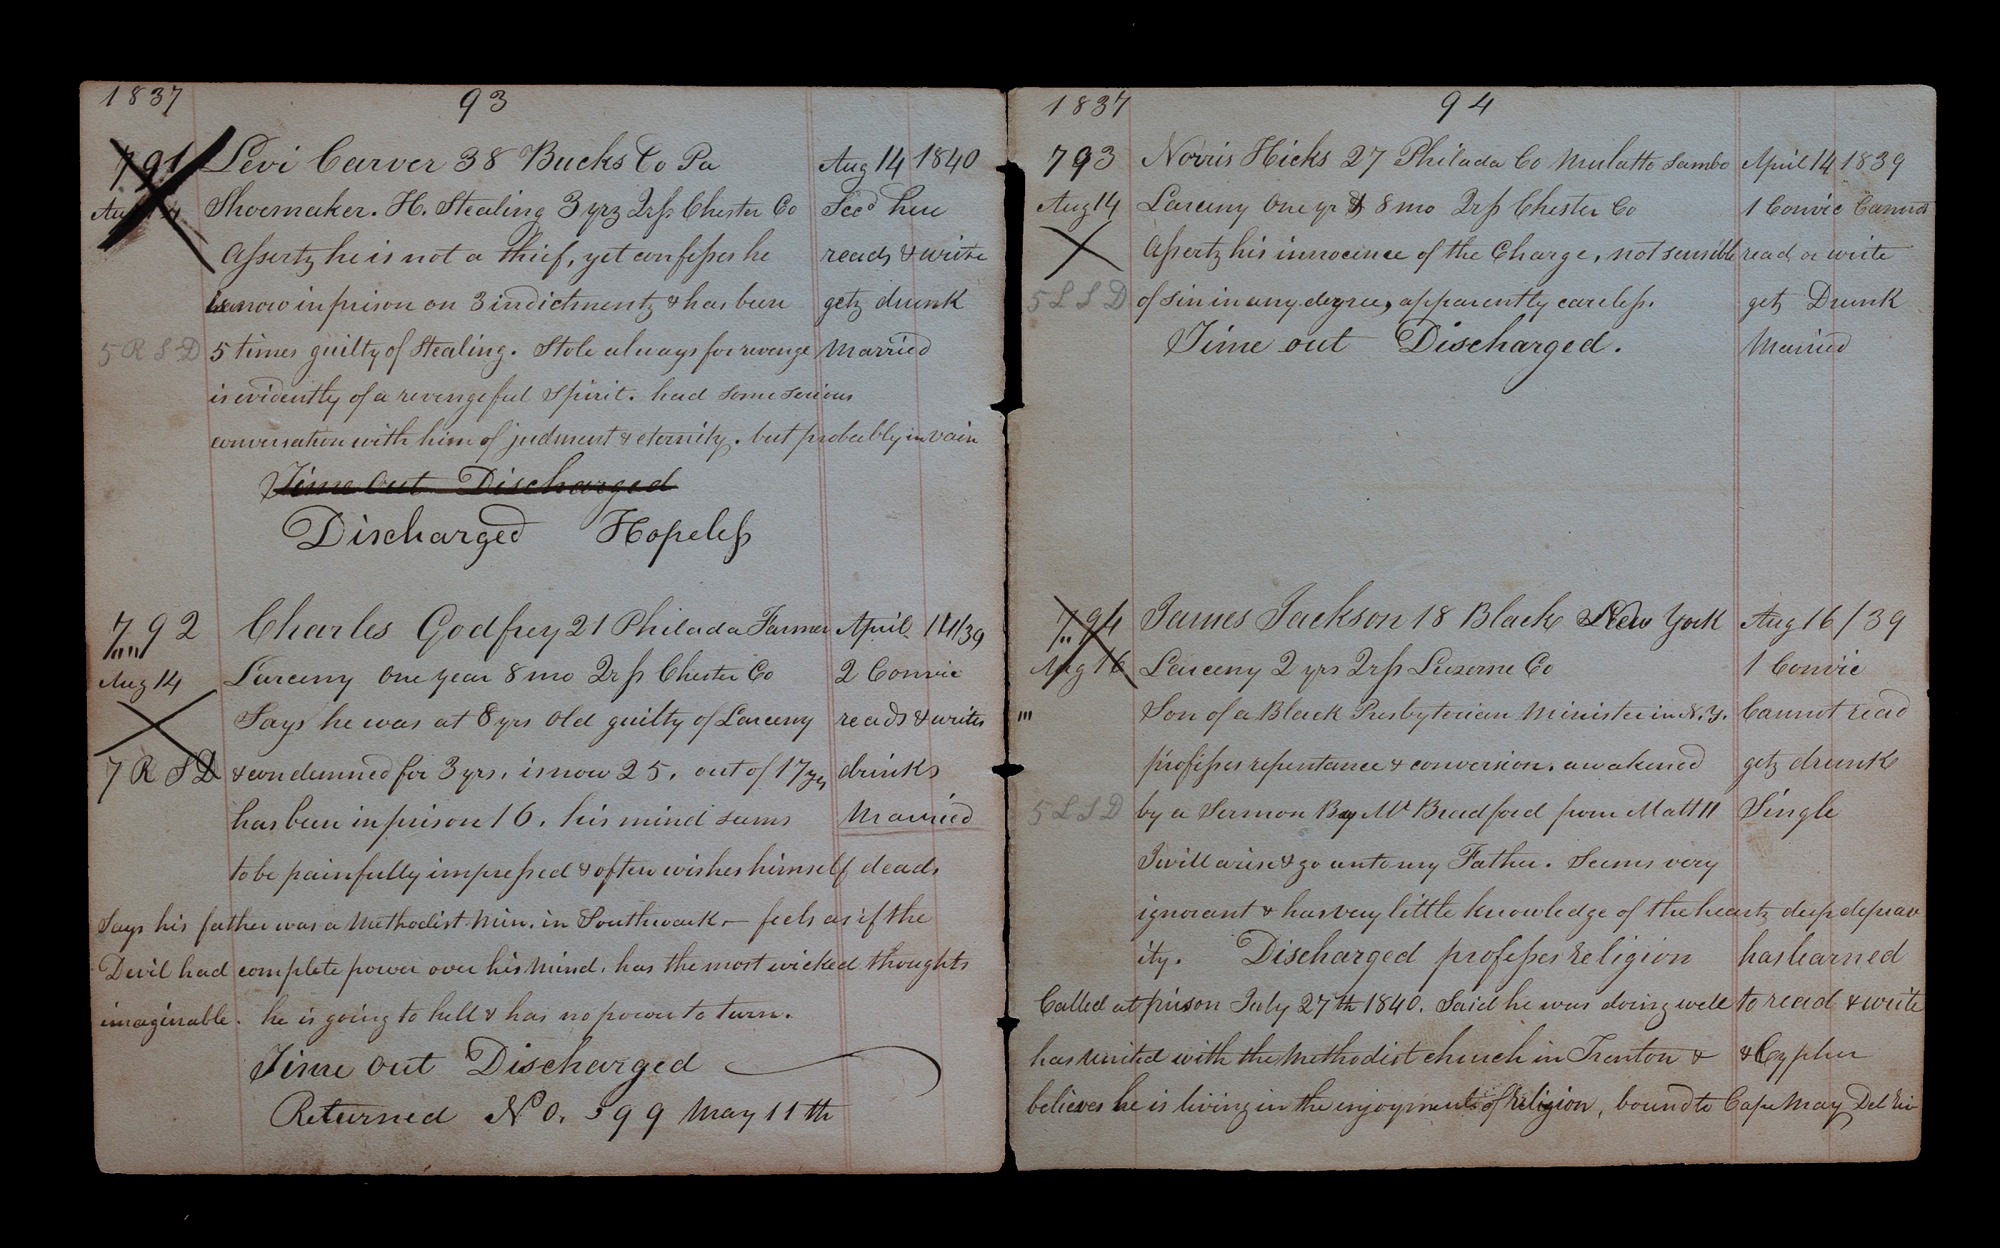 1837 93
791 Levi Carver 38 Bucks Co Pa Aug 14 1840
Aug 14 Shoemaker. H. Stealing 3 yrs 2rss Chester Co Secd here
Assertz he is not a thief, yet confesses he reads & write
is now in prison on 3 indictmentz & has been getz drunk
5 R S D 5 times guilty of Stealing. Stole always for revenge Married
is evidently of a revengeful Spirit. had some serious
conversation with him of judment & eternity. but probably in vain
Time out Discharged
Discharged Hopeless
792 Charles Godfrey 21 Philada Farmer April 14/39
Aug 14 Larceny One year 8 mo 2rss Chester Co 2 Convic
Says he was at 8 yrs old guilty of Larceny reads & writes
7 R S D & condemned for 3 yrs. is now 25. out of 17 yrs drinks
has been in prison 16. his mind seems Married
to be painfully impressed & often wishes himself dead.
Says his father was a Methodist Min. in Southwark – feels as if the
Devil had complete power over his mind. has the most wicked thoughts
imaginable. he is going to hell & has no power to turn.
Time out Discharged
Returned No. 599 May 11th
1837 94
793 Norris Hicks 27 Philada Co Mulatto Sambo April 14 1839
Aug 14 Larceny One yr & 8 mo 2rss Chester Co 1 Convic Cannot
Assertz his innocence of the Charge, not sensible read or write
5 L S D of sin in any degree, apparently careless. getz Drunk
Time out Discharged. Married
794 James Jackson 18 Black New York Aug 16/39
Aug 16 Larceny 2 yrs 2rss Luzerne Co 1 Convic
Son of a Black Presbyterian Minister in N.Y. Cannot read
professes repentance & conversion. awakened getz drunk
5 L S D by a Sermon By Mr Bradford from Matt 11 Single
I will arise & go unto my Father. Seems very
ignorant & has very little knowledge of the heartz deep deprav
ity. Discharged professes Religion has learned
Called at prison July 27th 1840. Said he was doing well to read & write
has united with the Methodist church in Trenton & & Cypher
believes he is living in the enjoyment of Religion, bound to Cape May Del Riv